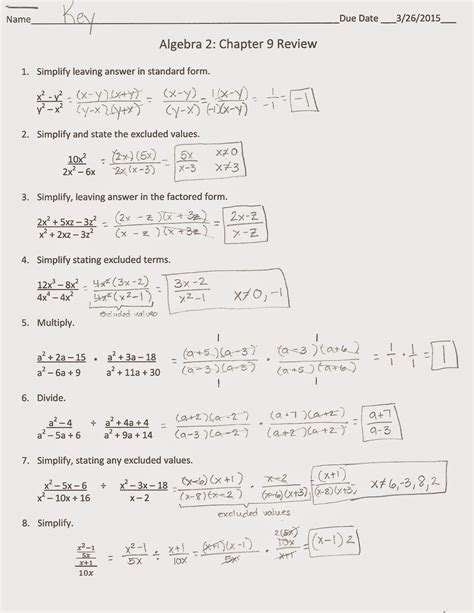 Name Key Due Date 3/26/2015
Algebra 2: Chapter 9 Review
1. Simplify leaving answer in standard form.
(x² - y²)/(y² – x²) = (x-y)(x+y)/(y-x)(y+x) = (x-y)/(y-x) = 1(x-y)/(-1)(x-y) = 1/-1 = -1
2. Simplify and state the excluded values.
10x²/(2x² – 6x) = (2x)(5x)/2x(x-3) = 5x/(x-3) x≠0 x≠3
3. Simplify, leaving answer in the factored form.
(2x² + 5xz – 3z²)/(x² + 2xz – 3z²) = (2x - z)(x + 3z)/(x - z)(x + 3z) = (2x-z)/(x-z)
4. Simplify stating excluded terms.
(12x³ – 8x²)/(4x⁴ – 4x²) = 4x²(3x-2)/4x²(x²-1) = (3x-2)/(x²-1) x≠0, -1
excluded values
5. Multiply.
(a² + 2a – 15)/(a² – 6a + 9) • (a² + 3a – 18)/(a² + 11a + 30) = (a+5)(a-3)/(a-3)(a-3) • (a-3)(a+6)/(a+5)(a+6) = 1/1 · 1/1 = 1
6. Divide.
(a² – 4)/(a² – 5a + 6) ÷ (a² + 4a + 4)/(a² + 9a + 14) = (a+2)(a-2)/(a-3)(a-2) · (a+7)(a+2)/(a+2)(a+2) = (a+7)/(a-3)
7. Simplify, stating any excluded values.
(x² – 5x – 6)/(x² – 10x + 16) ÷ (x² – 3x – 18)/(x – 2) = (x-6)(x+1)/(x-8)(x-2) · (x-2)/(x-6)(x+3) = (x+1)/(x-8)(x+3) x≠6,-3,8,2
excluded values
8. Simplify.
((x²–1)/5x)/((x+1)/10x) = (x²-1)/5x ÷ (x+1)/10x = (x+1)(x-1)/5x · 2(5x) 10x/(x+1) = (x-1)2